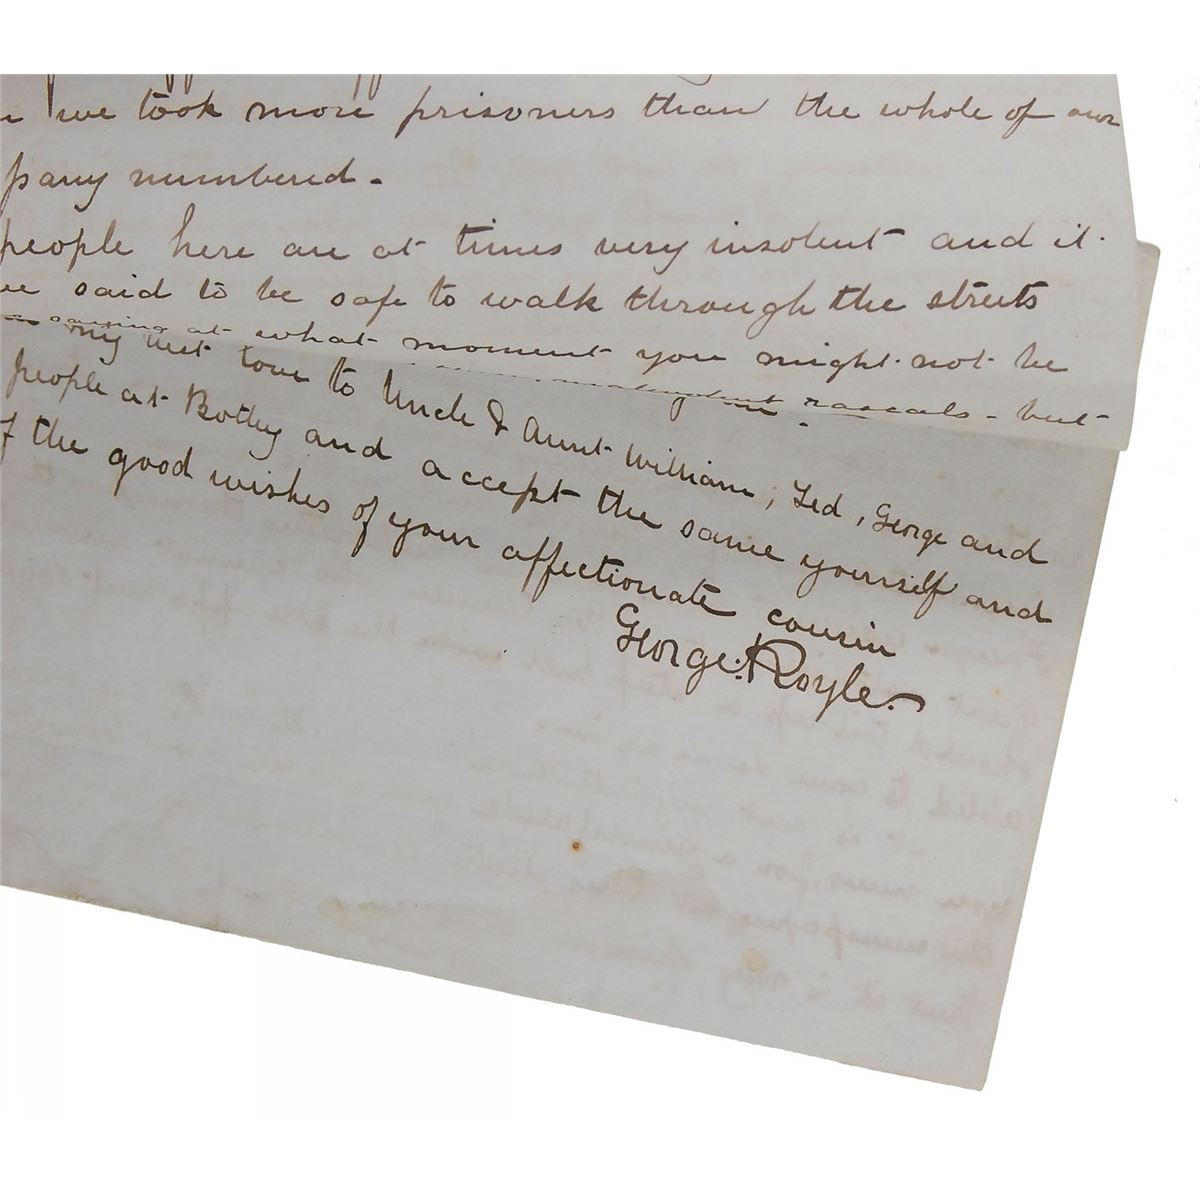 we took more prisoners than the whole of our
pany numbered -
people here are at times very insolent and it
said to be safe to walk through the streets
at what moment you might not be
rascals - but
my best love to Uncle & Aunt William, Ted, George and
people at Bothy and accept the same yourself and
of the good wishes of your affectionate cousin
George Royle.